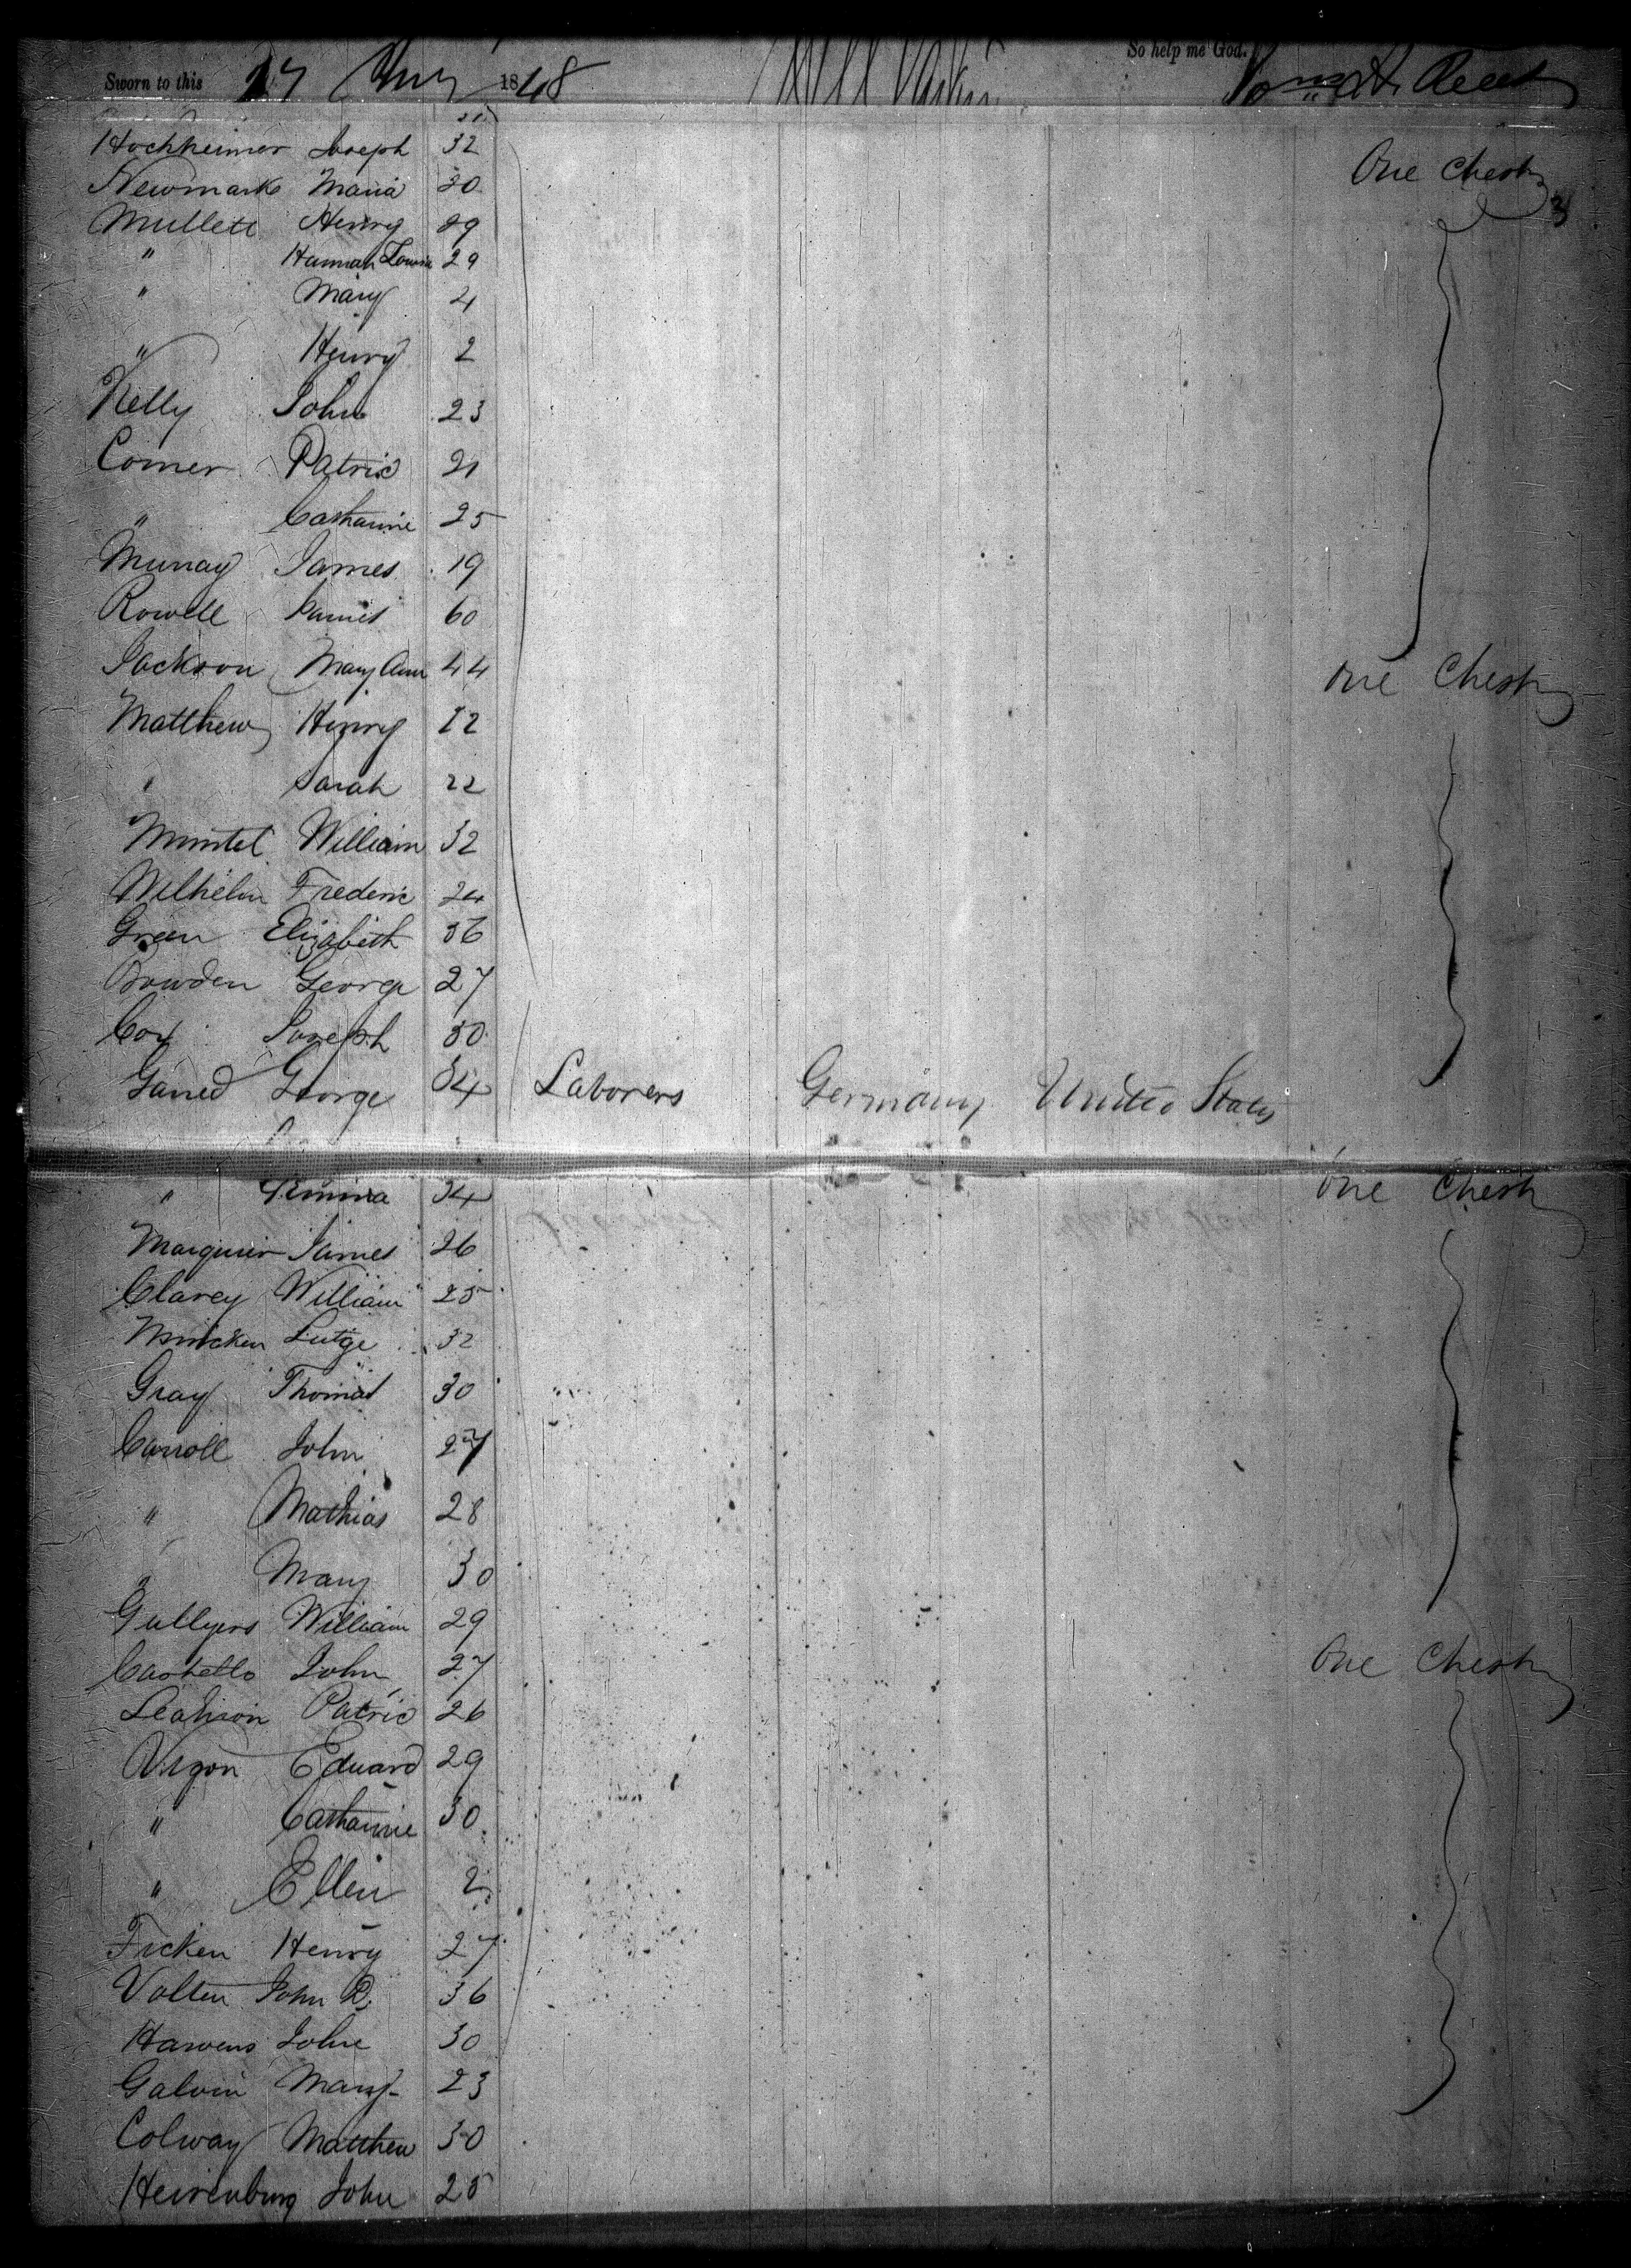 So help me God.
Sworn to this 27 Aug 1848
Hochheimer Joseph 32
Newmark Maria 30 One Chest
Mullett Henry 29
" Hannah Louisa 29
" Mary 4
" Henry 2
Kelly John 23
Comer Patric 21
" Catharine 25
Murray James 19
Rowell James 60
Jackson Mary Ann 44 One Chest
Matthew Henry 12
" Sarah 22
Muntel William 32
Wilhelm Frederic 24
Green Elizabeth 36
Bowden George 27
Cox Joseph 30
Garred George 34 Laborers Germany United States
" 34 One Chest
James 26
Clarey William 25
Lutge 32
Gray Thomas 30
Carroll John 27
" Mathias 28
" Mary 30
Gullyers William 29
Castello John 27 One Chest
Leahion Patric 26
Edward 29
" Catharine 30
" Ellen 2
Ficken Henry 27
Volten John R. 36
John 30
Galvin Mary 23
Colway Matthew 30
John 25